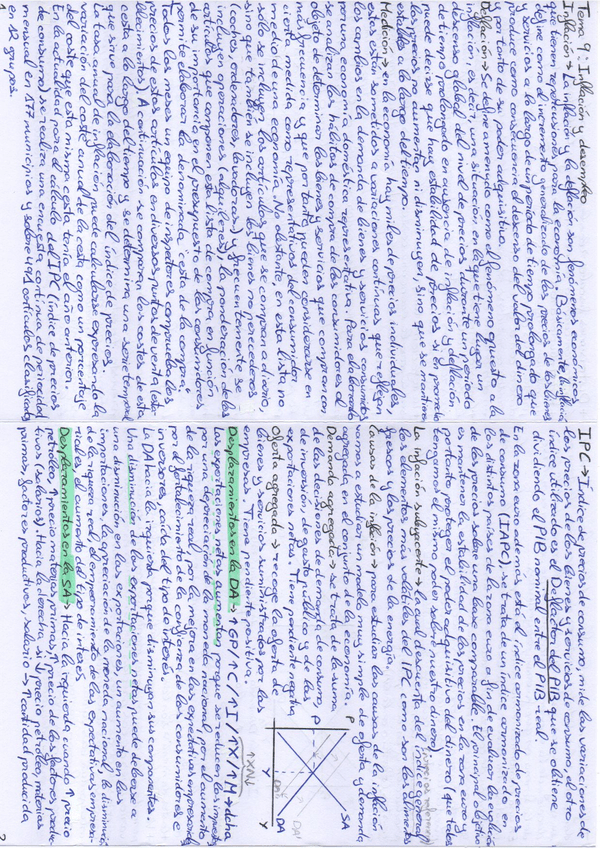 Tema 9: Inflación y desempleo
Inflación → La inflación y la deflación son fenómenos económicos
que tienen repercusiones para la economía. Básicamente la inflación se
define como el incremento generalizado de los precios de los bienes
y servicios a lo largo de un periodo de tiempo prolongado que
produce como consecuencia el descenso del valor del dinero
y por tanto de su poder adquisitivo.
Deflación → Se define a menudo como el fenómeno opuesto a la
inflación, es decir, una situación en la que tiene lugar un
descenso global del nivel de precios durante un periodo
de tiempo prolongado en ausencia de inflación y deflación
puede decirse que hay estabilidad de precios si por término
los precios no aumentan ni disminuyen, sino que se mantienen
estables a lo largo del tiempo.
Medición → en la economía hay miles de precios individuales,
estos están sometidos a variaciones continuas que reflejan
los cambios en la demanda de bienes y servicios cometidos
por una economía doméstica representativa. Para elaborarlo
se analizan los hábitos de compra de los consumidores al
objeto de determinar los bienes y servicios que compran con
más frecuencia y que por tanto pueden considerarse en
cierta medida como representativos del consumidor
medio de una economía. No obstante, en esta lista no
sólo se incluyen los artículos que se compran a diario,
sino que también se incluyen los bienes no perecederos
(coches, ordenadores, lavadoras) y frecuentemente se
incluyen operaciones (alquileres), la ponderación de los
artículos que componen esta lista de compra, en función
de su importancia en el presupuesto de los consumidores
permite elaborar la denominada "cesta de la compra".
Todos los meses un equipo de inspectores comprueba los
precios de estos artículos en diversos puntos de venta (esta-
blecimientos). A continuación se comparan los costes de esta
cesta a lo largo del tiempo y se determina una serie temporal
que sirve para la elaboración del índice de precios.
La tasa anual de inflación puede calcularse expresando la
variación del coste actual de la cesta como un porcentaje
del coste que esta misma cesta tenía el año anterior.
En la actualidad para el cálculo del IPC (índice de precios
de consumo) se realiza una encuesta continua de periodicidad
mensual en 177 municipios y sobre 491 artículos clasificados
en 12 grupos.
1
IPC → Índice de precios de consumo, mide las variaciones de
los precios de los bienes y servicios de consumo, el otro
índice utilizado es el Deflactor del PIB que se obtiene
dividiendo el PIB nominal entre el PIB real.
En la zona euro además está el índice armonizado de precios
de consumo (IAPC). Se trata de un índice armonizado en
los distintos países de la zona euro a fin de evaluar la evolución
de los precios sobre una base comparable. El principal objetivo
es mantener la estabilidad de los precios en la zona euro y
por tanto proteger el poder adquisitivo del dinero (que todos
tengamos el mismo poder sobre nuestro dinero)
La inflación subyacente → la cual descarta del índice general
los elementos más volátiles del IPC como son los alimentos
frescos y los precios de la energía.
Causas de la inflación → para estudiar las causas de la inflación
vamos a estudiar un modelo muy simple de oferta y demanda
agregada en el conjunto de la economía.
Demanda agregada → se trata de la suma
de las decisiones de demanda de consumo,
de inversión, de gasto público y de las
exportaciones netas. Tiene pendiente negativa
Oferta agregada → recoge la oferta de
bienes y servicios suministrados por las
empresas. Tiene pendiente positiva.
P
P
SA
DA
DA'
Y
Desplazamientos en la DA → ↑GP/↑C/↑I/↑X/↑M → dcha
↑XN
Las exportaciones netas aumentan porque se reducen los impuestos,
por una depreciación de la moneda nacional, por el aumento
de la riqueza real, por la mejora en las expectativas empresariales,
por el fortalecimiento de la confianza de los consumidores e
inversores, caída del tipo de interés.
La DA hacia la izquierda porque disminuyen sus componentes.
Una disminución de las exportaciones netas puede deberse a
una disminución en las exportaciones, un aumento en las
importaciones, la apreciación de la moneda nacional, la disminución
de la riqueza real, el empeoramiento de las expectativas empresa-
riales, el aumento del tipo de interés.
Desplazamientos en la SA → Hacia la izquierda cuando ↑ precio
petróleo, ↑ precio materias primas, ↑ precio de los factores produc-
tivos (salarios). Hacia la derecha si ↓ precio petróleo, materias
primas, factores productivos, salario → ↑ cantidad producida
2